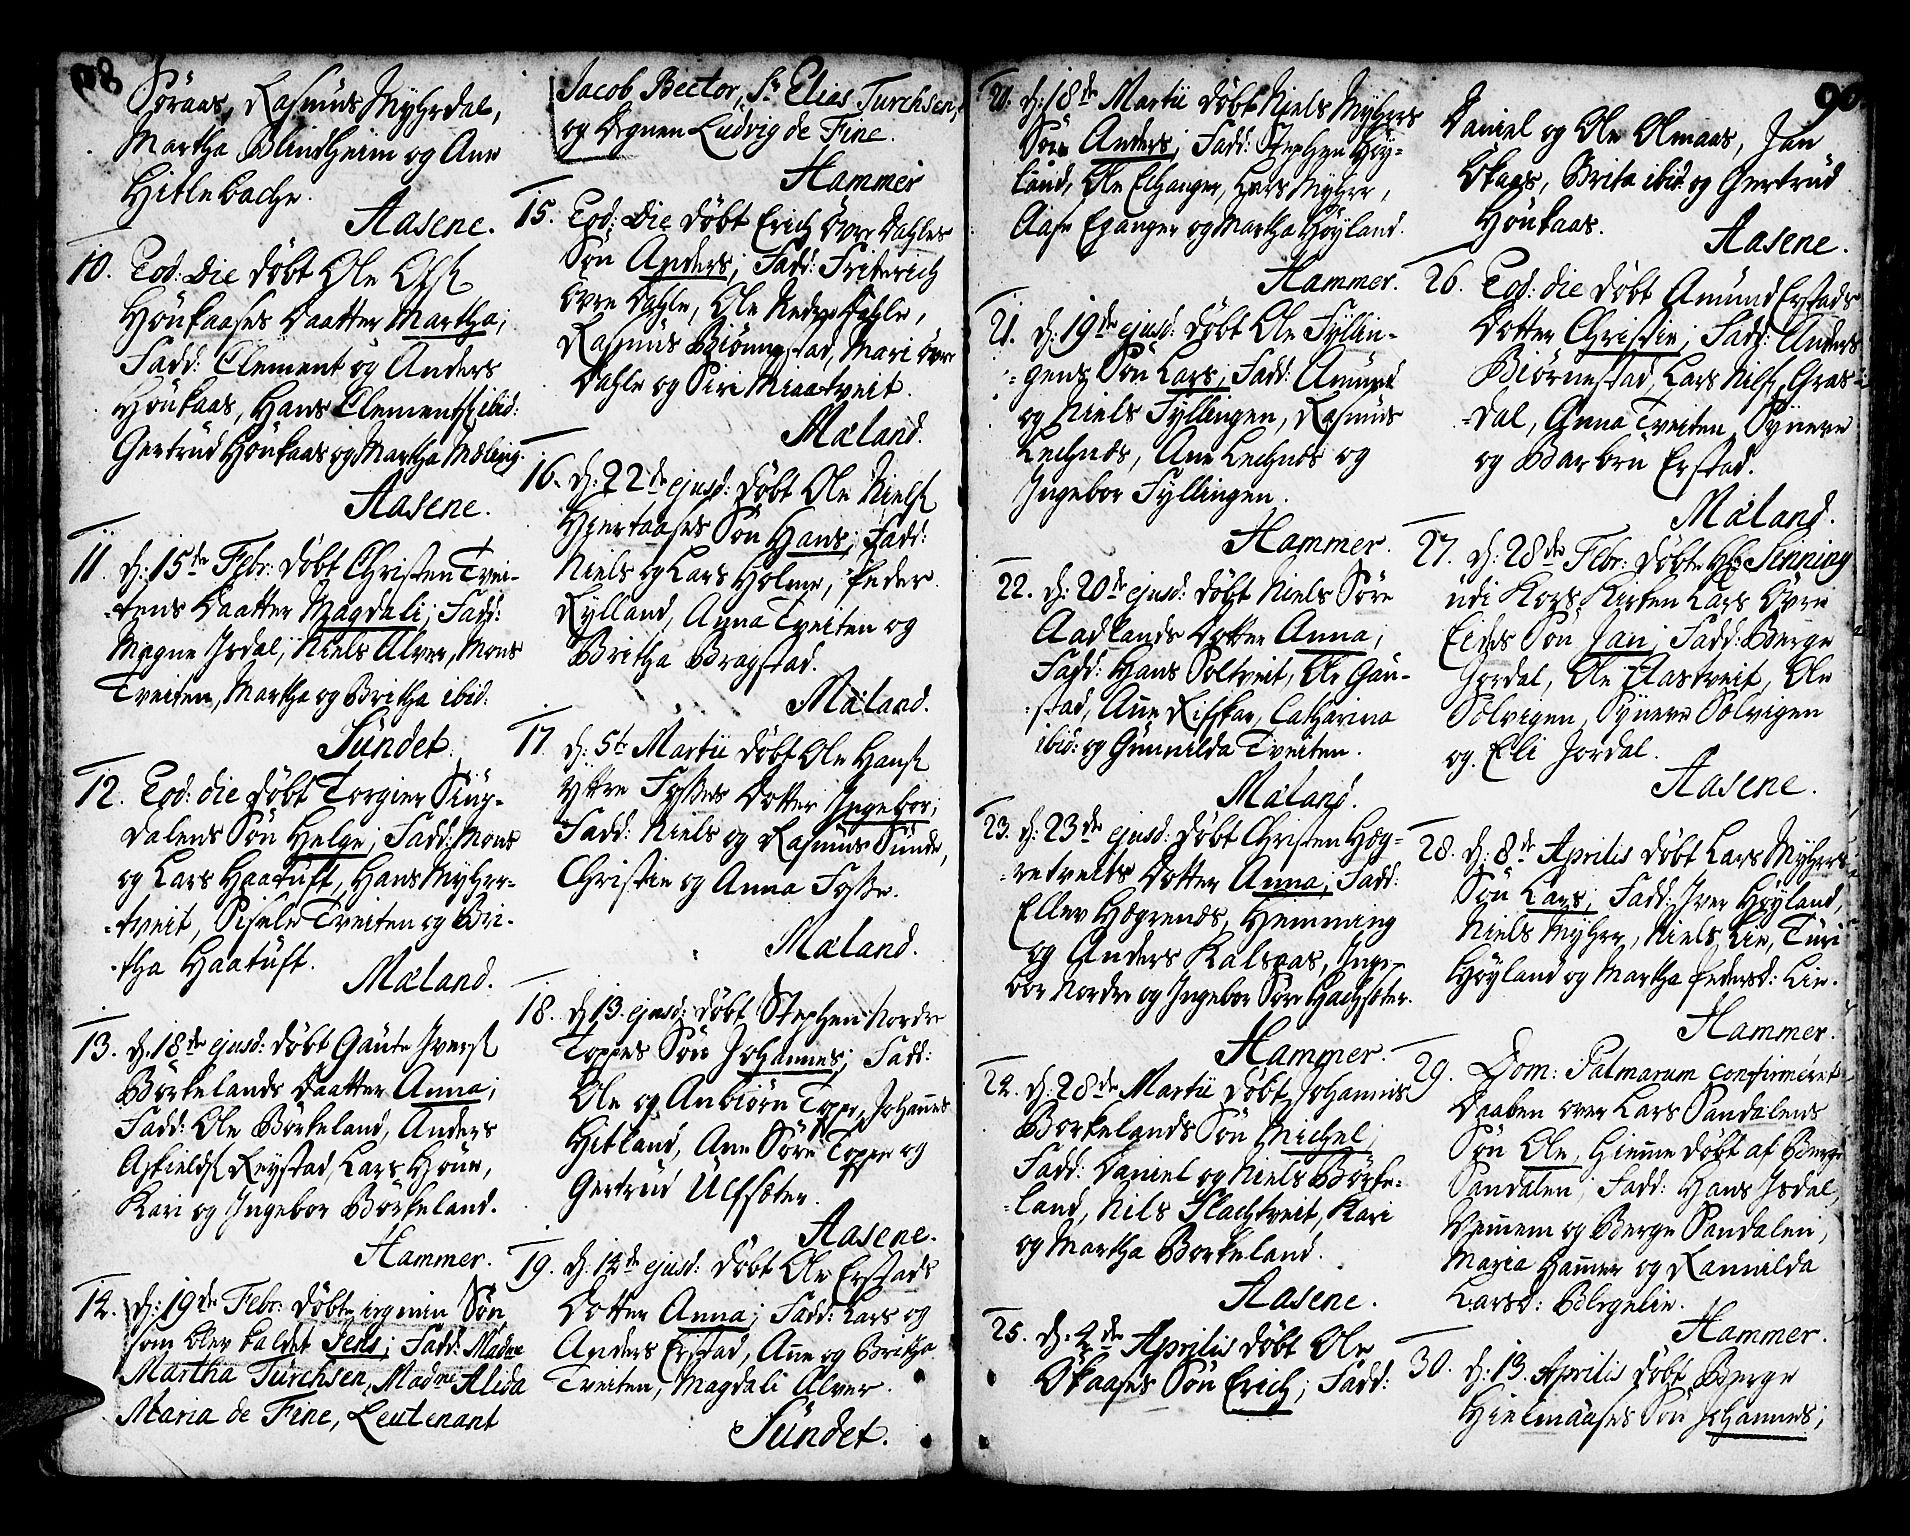 88
Söraas, Rasmus Myhrdal,
Martha Blindheim og Ane
Hitlebache.
Aasene.
10. Eod: Die döbt Ole Ols
Höukaases Daatter Martha;
Fadd: Clement og Anders
Höukaas, Hans Clements ibid:
Gertrud Höukaas og Martha Mæling.
Aasene.
11. d: 15de Febr: döbt Christen Tvei-
tens Daatter Magdali; Fadd:
Magne Isdal, Niels Alver, Mons
Tveiten, Martha og Britha ibid:
Sundet.
12. Eod: die döbt Torgier Siug-
dalens Sön Helge; Fadd: Mons
og Lars Haatuft, Hans Myhre-
tveit, Sisele Tveiten og Bri-
tha Haatuft.
Mæland.
13. d: 18de ejusd: döbt Gaute Ivers
Börkelands Daatter Anna;
Fadd: Ole Börkeland, Anders
Askields Reystad, Lars Höue,
Kari og Ingebor Börkeland.
Hammer.
14. d: 19de Febr: döbte ieg min Sön,
som blev kaldet Jens; Fadd: Madme
Martha Turchsen, Madme Alida
Maria de Fine, Leutenant
Jacob Bector, Sr Elias Turchsen,
og Degnen Ludvig de Fine.
Hammer
15. Eod: Die döbt Erich övre Dahles
Sön Anders; Fadd: Friderich
övre Dahle, Ole Nedre Dahle,
Rasmus Biörnestad, Mari övre
Dahle og Siri Miaatveit.
Mæland.
16. d: 22de ejusd: döbt Ole Niels
Hiertaases Sön Hans; Fadd:
Niels og Lars Holme, Peder
Rylland, Anna Tveiten og
Britha Bragstad.
Mæland.
17. d: 5te Martii döbt Ole Hans
Yttre Fosses Dotter Ingebor;
Fadd: Niels og Rasmus Sunde,
Christin og Anna Fosse.
Mæland.
18. d: 13. ejusd: döbt Stephen Nordre
Toppes Sön Johannes; Fadd:
Ole og Anbiörn Toppe, Johanes
Hitland, Ane Söre Toppe og
Gertrud Ulfsæter.
Aasene.
19. d: 14de ejusd: döbt Ole Erstads
Dotter Anna; Fadd: Lars og
Anders Erstad, Ane og Britha
Tveiten, Magdali Alver.
Sundet.
20. d: 18de Martii döbt Niels Myhres
Sön Anders; Fadd: Stephen Höy-
land, Ole Echanger, Lars Myhre,
Aase Echanger og Martha Höyland.
Hammer.
21. d: 19de ejusd: döbt Ole Fyllin-
gens Sön Lars; Fadd: Amund
og Niels Fyllingen, Rasmus
Lechnæs, Ane Lechnæs og
Ingebor Fyllingen.
Hammer.
22. d: 20de ejusd: döbt Niels Söre
Aadlands Dotter Anna;
Fadd: Hans Soltveit, Ole Gau-
stad, Ane Risskar, Catharina
ibid: og Gunnilda Tveiten.
Mæland.
23. d: 23de ejusd: döbt Christen Hog-
retveits Dotter Anna; Fadd:
Ellev Hegrenæs, Hemming
og Anders Kalsaas, Inge-
bor Nordre og Ingebor Söre Hachsæter.
Hammer.
24. d: 28de Martii döbt Johannis
Borkelands Sön Michel;
Fadd: Daniel og Niels Börke-
land, Nils Flachtveit, Kari
og Martha Borkeland.
Aasene.
25. d: 2de Aprilis döbt Ole
Okaases Sön Erich; Fadd:
90
Daniel og Ole Olmaas, Jan
Okaas, Brita ibid og Gertrud
Höukaas.
Aasene.
26. Eod: die döbt Amund Erstads
Dotter Christin; Fadd: Anders
Biörnestad, Lars Nils Gras-
dal, Anna Tveiten, Synneve
og Barbru Erstad.
Mæland.
27. d: 28de Febr: döbte Hr Senning
udi Kors Kirken Lars Övre
Eides Sön Jan; Fadd: Berge
Jordal, Ole Flastveit, Ole
Solvigen, Synneve Solvigen
og Eli Jordal.
Aasene.
28. d: 8de Aprilis döbt Lars Myhres
Sön Lars; Fadd: Iver Höyland,
Niels Myhre, Niels Lie, Turi
Höyland og Martha Pedersd: Lie.
Hammer.
29. Dom: Palmarum confirmeret
Daaben over Lars Sandalens
Sön Ole, hieme döbt af Berge
Sandalen; Fadd: Hans Isdal,
Vemem og Berge Sandalen,
Maria Hamer og Rannilda
Larsd: Blegelie.
Hammer.
30. d: 13. Aprilis döbt Berge
Hielmaases Sön Johannes;